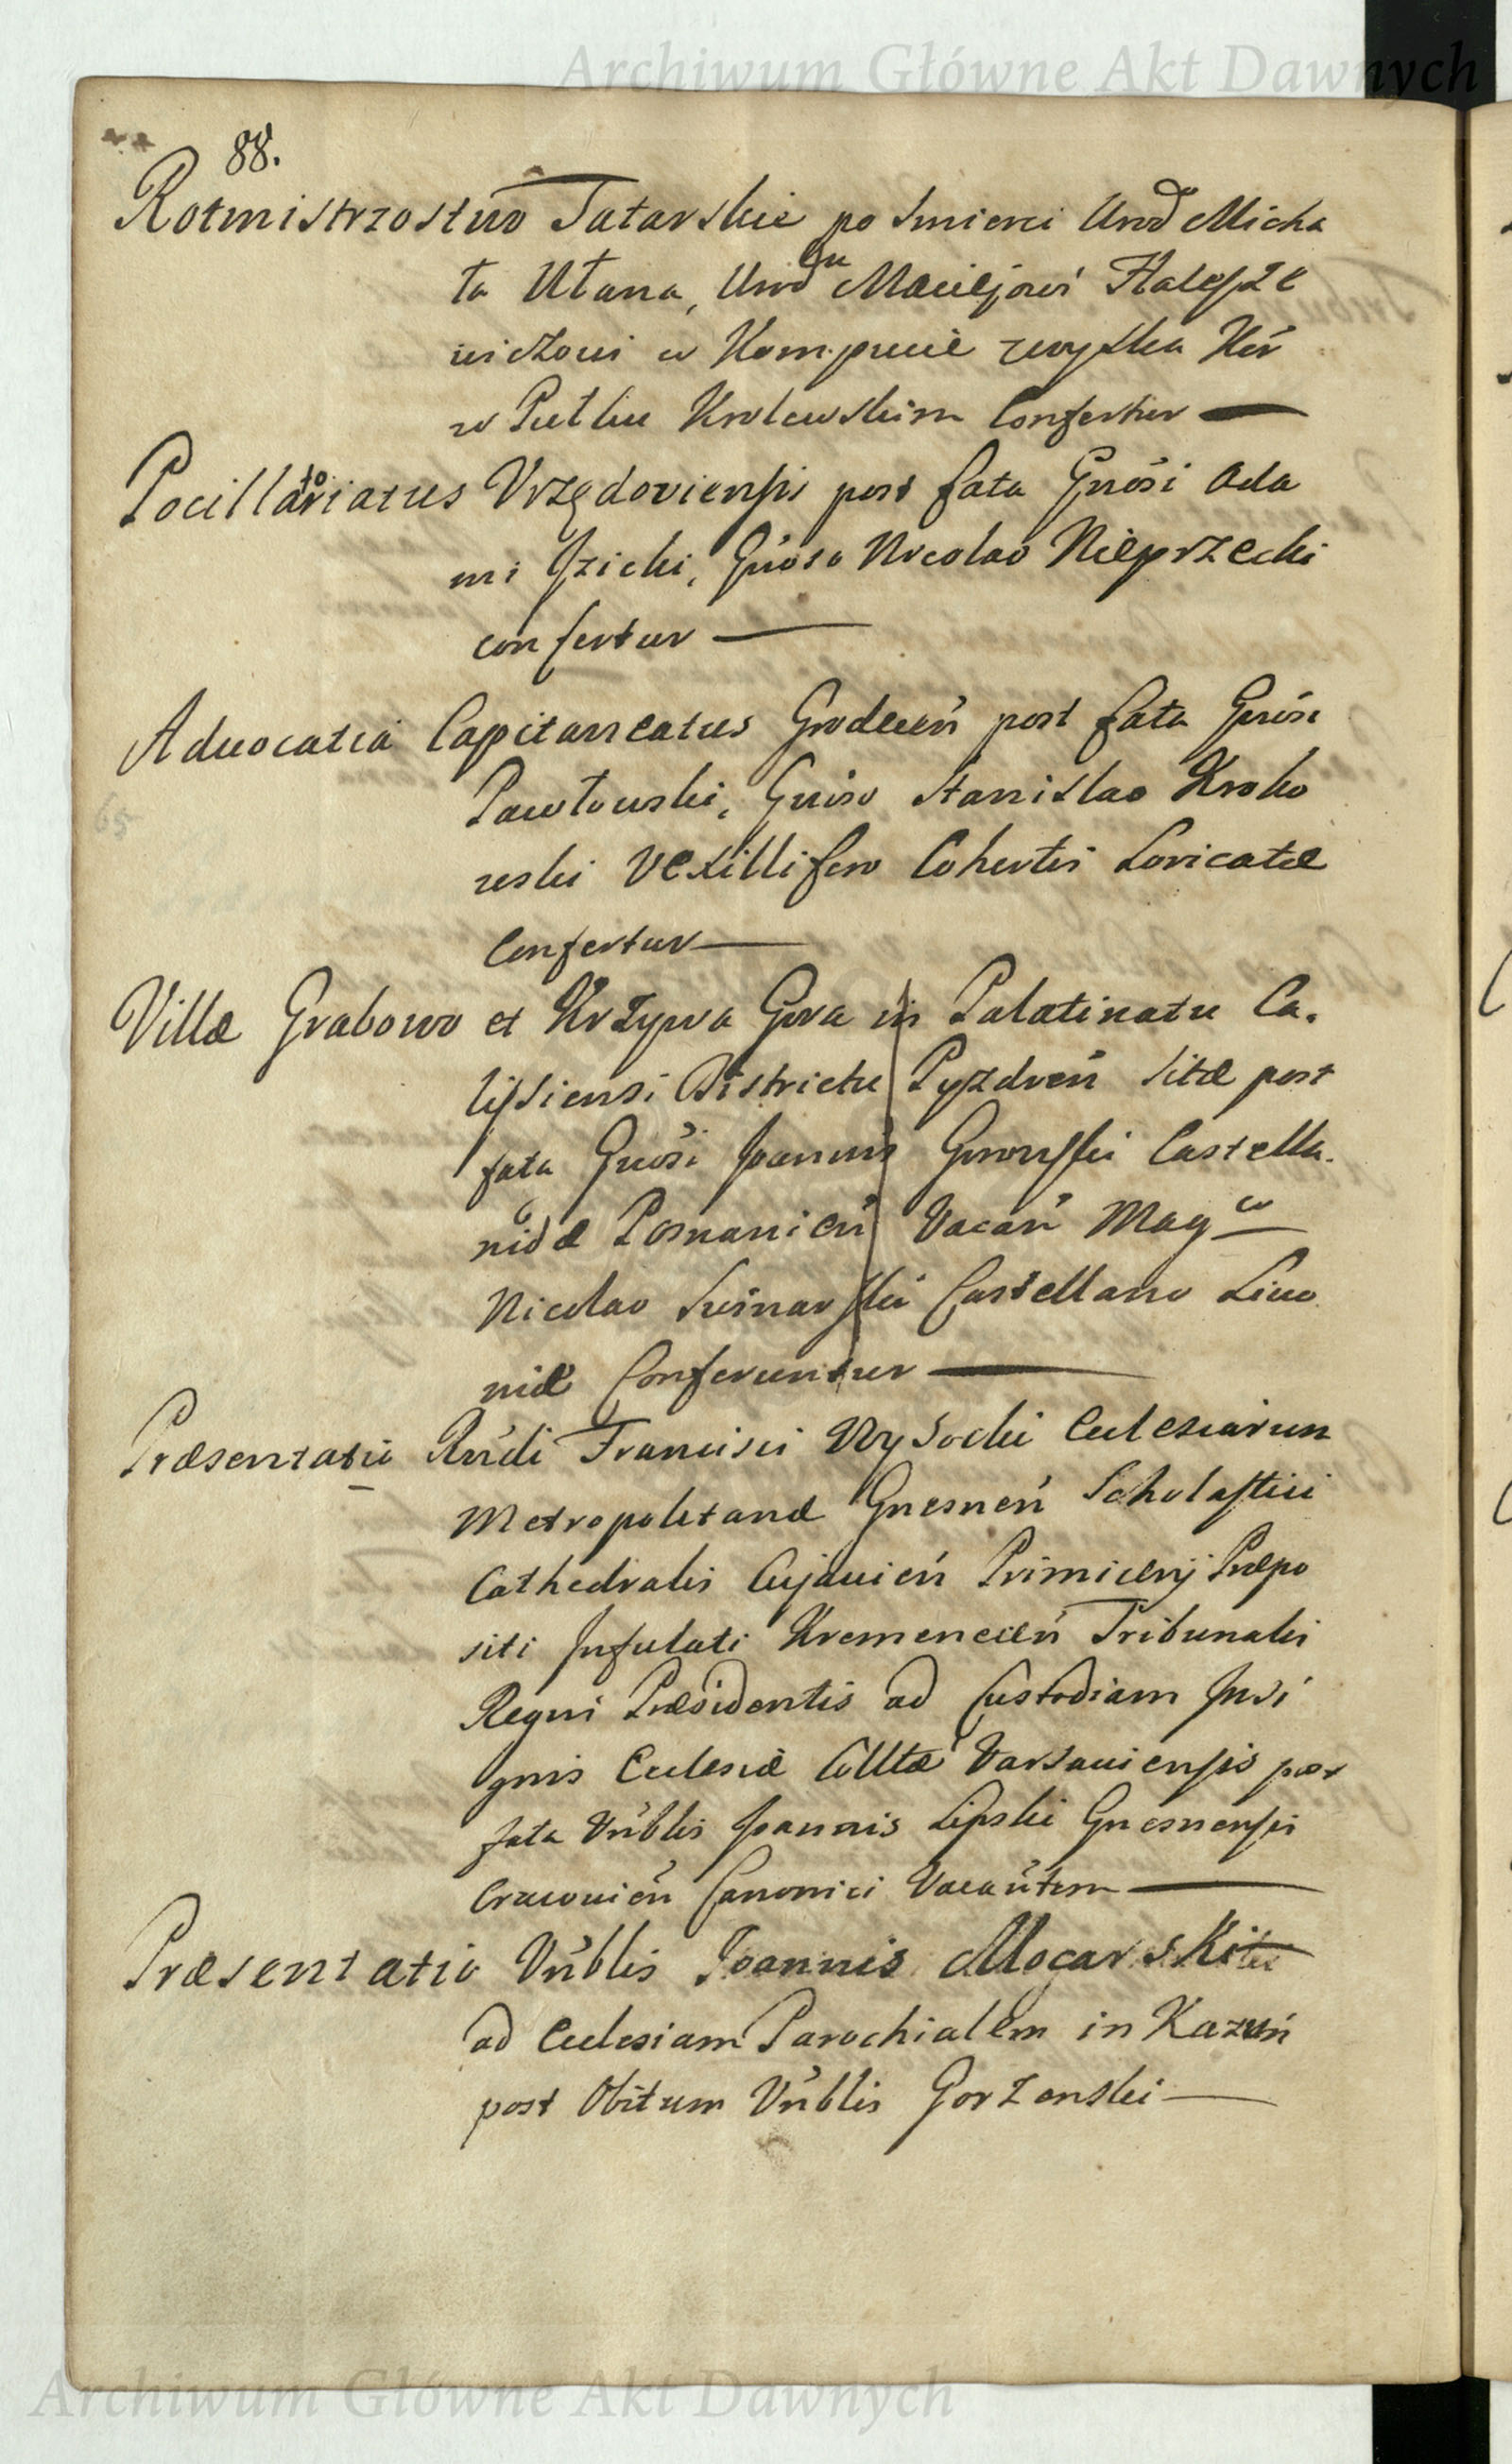 Archiwum Główne Akt Dawnych
88.
Rotmistrzostwo Tatarskie po Smierci Urod Micha
ła Ułana, Urodmu Maciejowi Halepże
wiczowi w Kompucie Woyska Kor
w Pułku Krolewskim Confertur
Pocillatoriatus Vrzędoviensis post fata Gnosi Ada
mi Izicki, Gnoso Nicolao Nieprzecki
confertur
Advocatia Capitaneatus Grodecen post fata Gnosi
Pawłowski, Gnoso Stanislao Kroko
wski Vexillifero Cohortis Loricatæ
Confertur
Villæ Grabowo et Krzywa Gora in Palatinatu Ca.
lissiensi Districtu Pyzdren sitæ post
fata Gnosi Joannis Gurowski Castella.
nidæ Posnanien Vacan Magco
Nicolao Swinarski Castellano Livo
niæ Conferuntur
Præsentatio Rndi Francisci Wysocki Ecclesiarum
Metropolitanæ Gnesnen Scholastici
Cathedralis Cujavien Primicerij Præpo
siti Infulati Kremenecen Tribunalis
Regni Præsidentis ad Custodiam Insi
gnis Ecclesiæ Colltæ Varsaviensis post
fata Vnblis Joannis Lipski Gnesnensis
Cracovien Canonici Vacantem
Præsentatio Vnblis Joannis Mocarski
ad Ecclesiam Parochialem in Kazuń
post Obitum Vnblis Gorzenski
65
Archiwum Główne Akt Dawnych